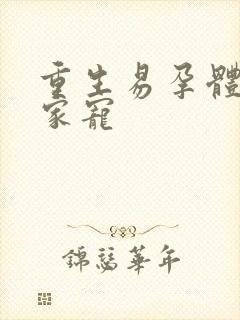 重生易孕體
家寵
錦瑟華年